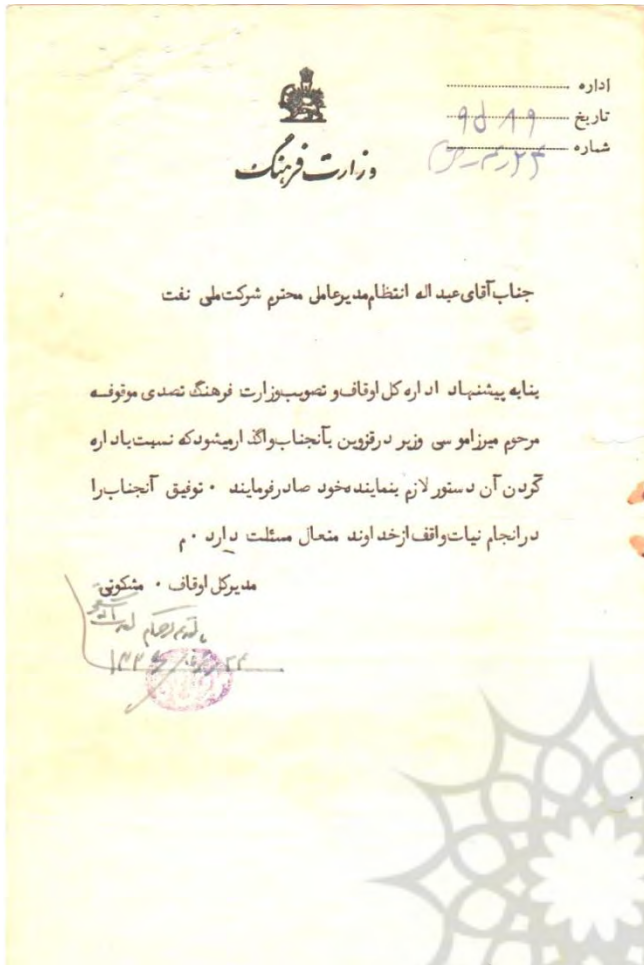 اداره
تاریخ
شماره
وزارت فرهنگ
جناب آقای عبداله انتظام مدیرعامل محترم شرکت ملی نفت
بنابه پیشنهاد اداره کل اوقاف و تصویب وزارت فرهنگ تصدی موقوفه
مرحوم میرزاموسی وزیر در قزوین بآنجناب واگذار میشود که نسبت باداره
کردن آن دستور لازم بنماینده خود صادر فرمایند ۰ توفیق آنجناب را
در انجام نیات واقف از خداوند متعال مسئلت دارد ۰ م
مدیر کل اوقاف ۰ مشکوتی